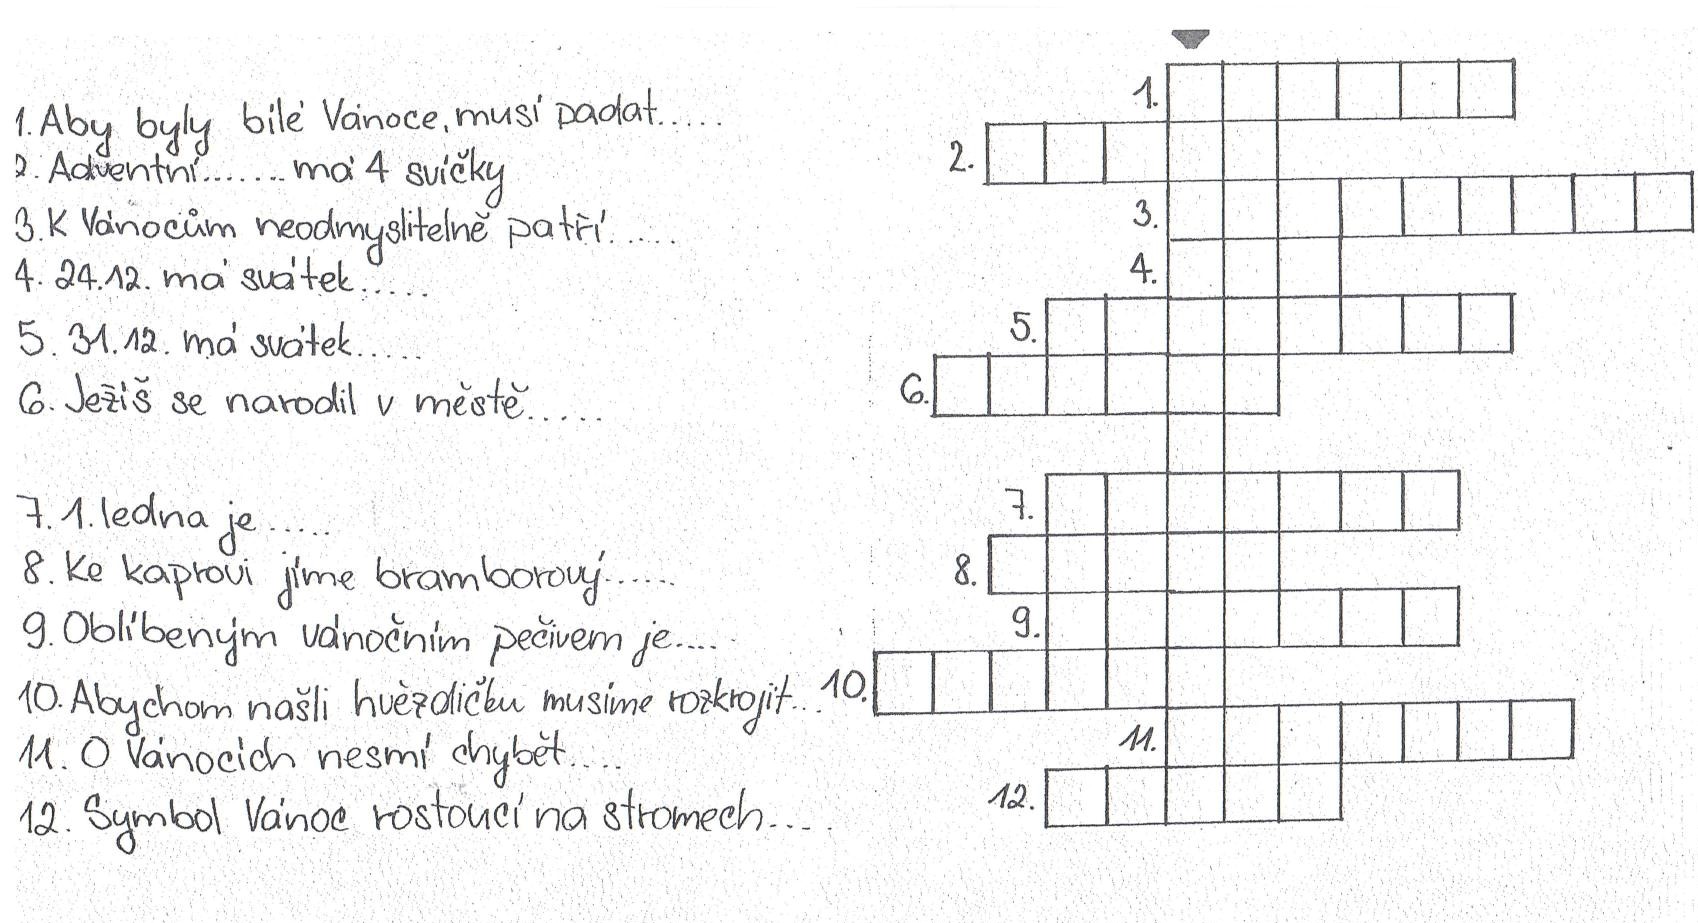 1. Aby byly bílé Vánoce, musí padat.....
2. Adventní....... má 4 svíčky
3. K Vánocům neodmyslitelně patří......
4. 24.12. má svátek.....
5. 31.12. má svátek.....
6. Ježíš se narodil v městě.....
7. 1. ledna je.....
8. Ke kaprovi jíme bramborový......
9. Oblíbeným vánočním pečivem je....
10. Abychom našli hvězdičku musíme rozkrojit...
11. O Vánocích nesmí chybět....
12. Symbol Vánoc rostoucí na stromech....
1.
2.
3.
4.
5.
6.
7.
8.
9.
10.
11.
12.